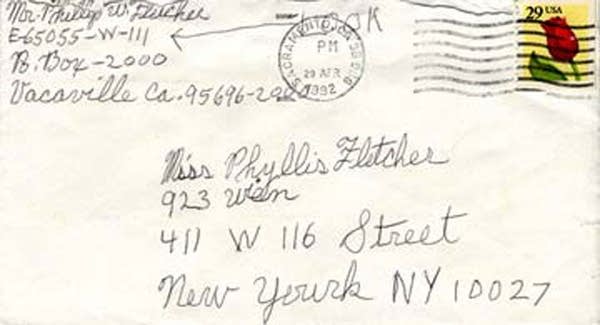 Mr. Phillip W. Fletcher
E-65055-W-111
P. Box-2000
Vacaville Ca. 95696-2000
LOOK
SACRAMENTO, CA
PM
29 APR
1992
29 USA
Miss Phyllis Fletcher
923 Wien
411 W 116 Street
New Yourk NY 10027